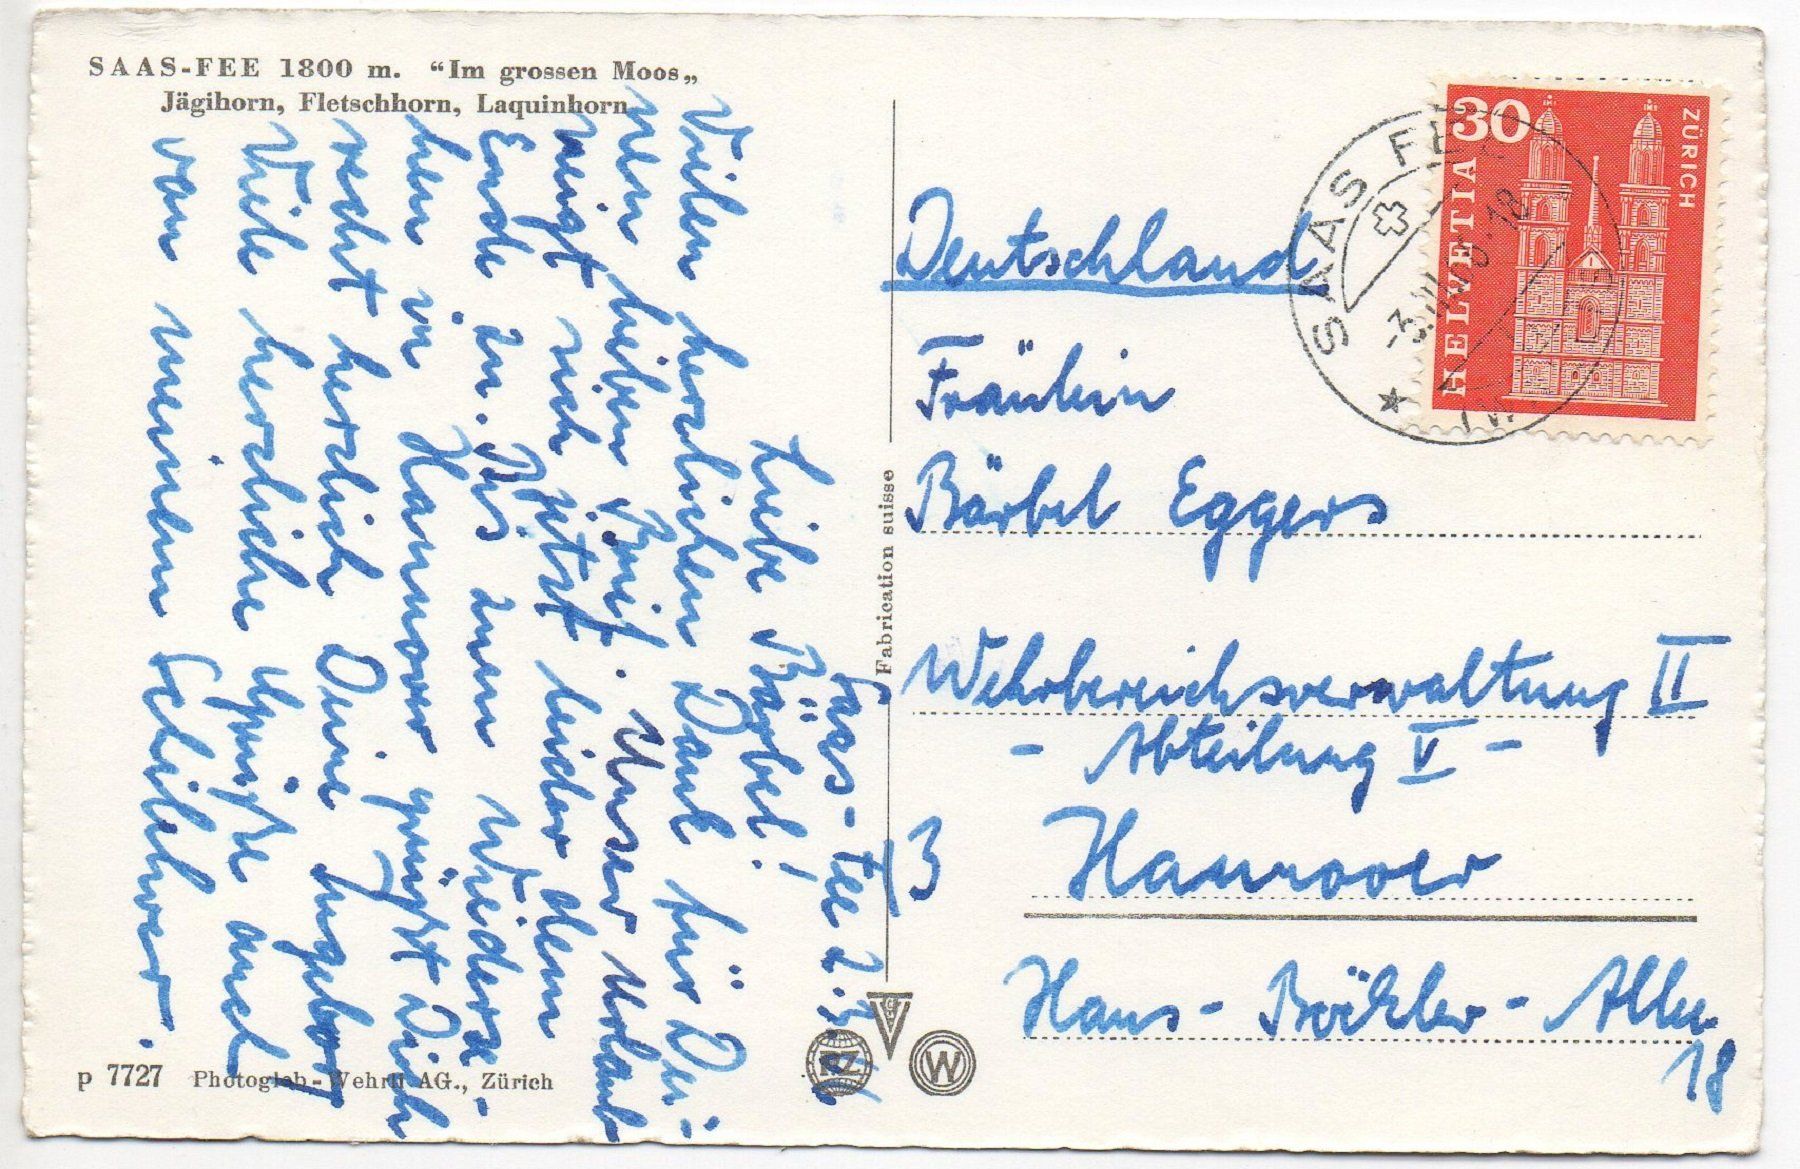 SAAS-FEE 1800 m. “Im grossen Moos„
Jägihorn, Fletschhorn, Laquinhorn
Saas-Fee 2.3.
Liebe Bärbel!
Vielen herzlichen Dank für Dei-
nen lieben Brief. Unser Urlaub
neigt sich jetzt leider dem
Ende zu. Bis zum Wiederse-
hen in Hannover grüßt Dich
recht herzlich Deine Ingeborg
Viele herzliche Grüße auch
von meinen Schiehver.
p 7727 Photoglob-Wehrli AG., Zürich
Fabrication suisse
PZ
W
30
ZÜRICH
HELVETIA
SAAS FEE
-18
Deutschland
Fräulein
Bärbel Eggers
Wehrbereichsverwaltung II
- Abteilung V -
3 Hannover
Hans-Böckler-Allee
18